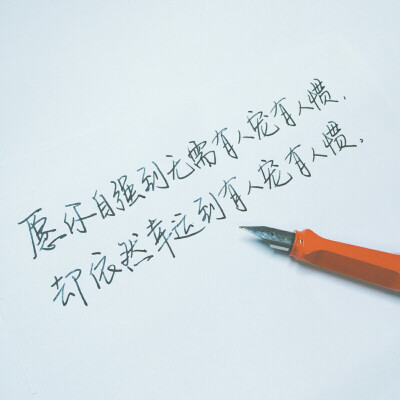 愿你自强到无需有人宠有人惯,
却依然幸运到有人宠有人惯,